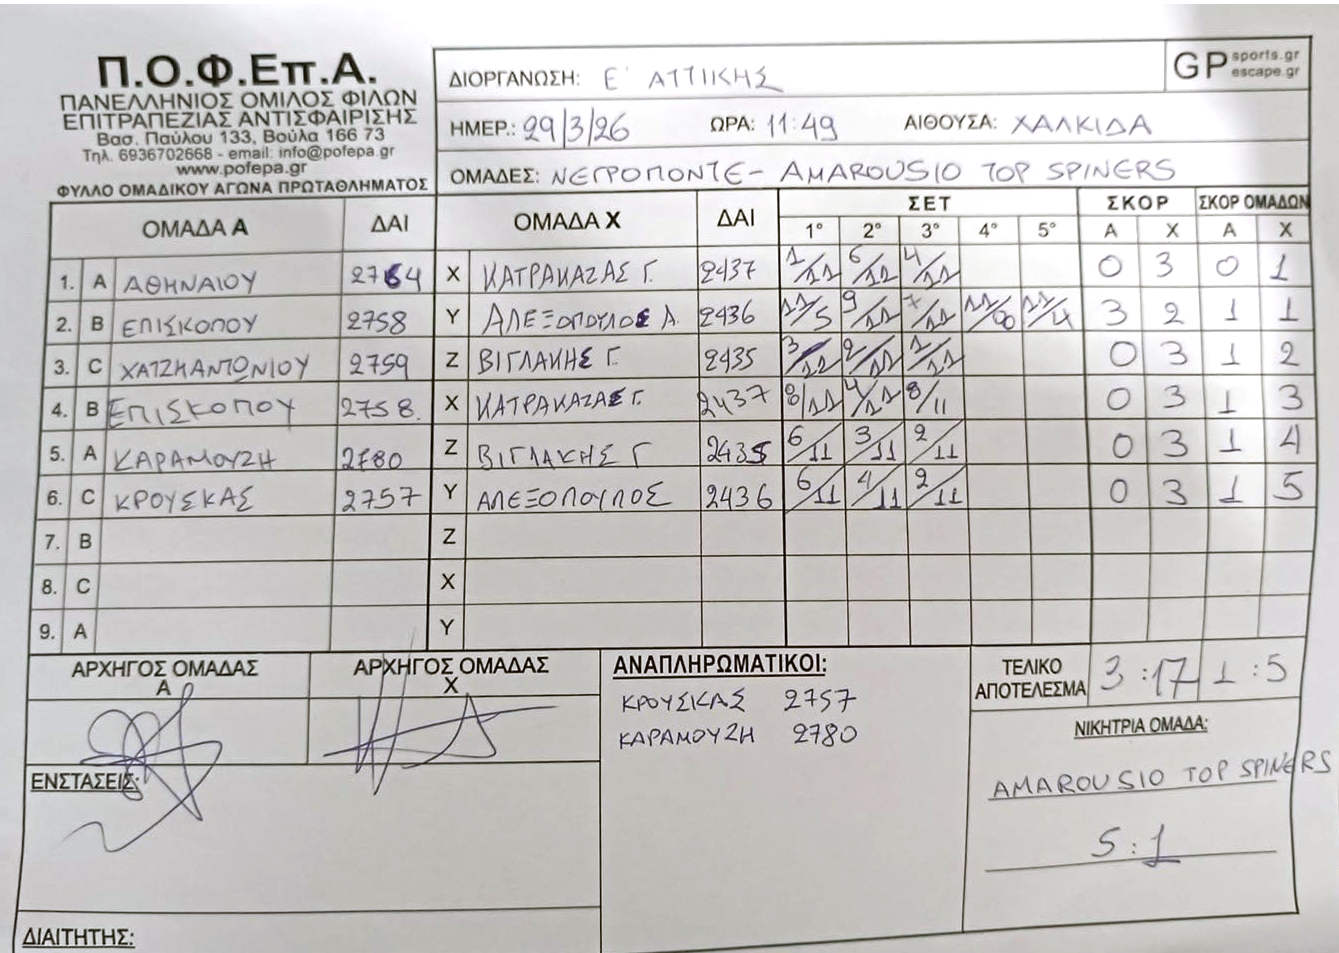 Π.Ο.Φ.Επ.Α.
ΠΑΝΕΛΛΗΝΙΟΣ ΟΜΙΛΟΣ ΦΙΛΩΝ
ΕΠΙΤΡΑΠΕΖΙΑΣ ΑΝΤΙΣΦΑΙΡΙΣΗΣ
Βασ. Παύλου 133, Βούλα 166 73
Τηλ. 6936702668 - email: info@pofepa.gr
www.pofepa.gr
ΦΥΛΛΟ ΟΜΑΔΙΚΟΥ ΑΓΩΝΑ ΠΡΩΤΑΘΛΗΜΑΤΟΣ
ΔΙΟΡΓΑΝΩΣΗ: Ε' ΑΤΤΙΚΗΣ
GP sports.gr
escape.gr
ΗΜΕΡ.: 29/3/26 ΩΡΑ: 11:49 ΑΙΘΟΥΣΑ: ΧΑΛΚΙΔΑ
ΟΜΑΔΕΣ: ΝΕΓΡΟΠΟΝΤΕ - AMAROUSIO TOP SPINERS
ΟΜΑΔΑ Α ΔΑΙ ΟΜΑΔΑ Χ ΔΑΙ ΣΕΤ ΣΚΟΡ ΣΚΟΡ ΟΜΑΔΩΝ
1° 2° 3° 4° 5° Α Χ Α Χ
1. A ΑΘΗΝΑΙΟΥ 2764 X ΚΑΤΡΑΚΑΖΑΣ Γ. 2437 1/11 6/11 4/11 0 3 0 1
2. B ΕΠΙΣΚΟΠΟΥ 2758 Y ΑΛΕΞΟΠΟΥΛΟΣ Α. 2436 11/5 9/11 7/11 11/9 11/4 3 2 1 1
3. C ΧΑΤΖΗΑΝΤΩΝΙΟΥ 2759 Z ΒΙΓΛΑΚΗΣ Γ. 2435 3/11 2/11 1/11 0 3 1 2
4. B ΕΠΙΣΚΟΠΟΥ 2758. X ΚΑΤΡΑΚΑΖΑΣ Γ. 2437 8/11 4/11 8/11 0 3 1 3
5. A ΚΑΡΑΜΟΥΖΗ 2780 Z ΒΙΓΛΑΚΗΣ Γ 2435 6/11 3/11 2/11 0 3 1 4
6. C ΚΡΟΥΣΚΑΣ 2757 Y ΑΛΕΞΟΠΟΥΛΟΣ 2436 6/11 4/11 2/11 0 3 1 5
7. B Z
8. C X
9. A Y
ΑΡΧΗΓΟΣ ΟΜΑΔΑΣ Α ΑΡΧΗΓΟΣ ΟΜΑΔΑΣ Χ
ΑΝΑΠΛΗΡΩΜΑΤΙΚΟΙ:
ΚΡΟΥΣΚΑΣ 2757
ΚΑΡΑΜΟΥΖΗ 2780
ΤΕΛΙΚΟ ΑΠΟΤΕΛΕΣΜΑ 3:17 1:5
ΝΙΚΗΤΡΙΑ ΟΜΑΔΑ:
AMAROUSIO TOP SPINERS
5:1
ΕΝΣΤΑΣΕΙΣ:
ΔΙΑΙΤΗΤΗΣ: